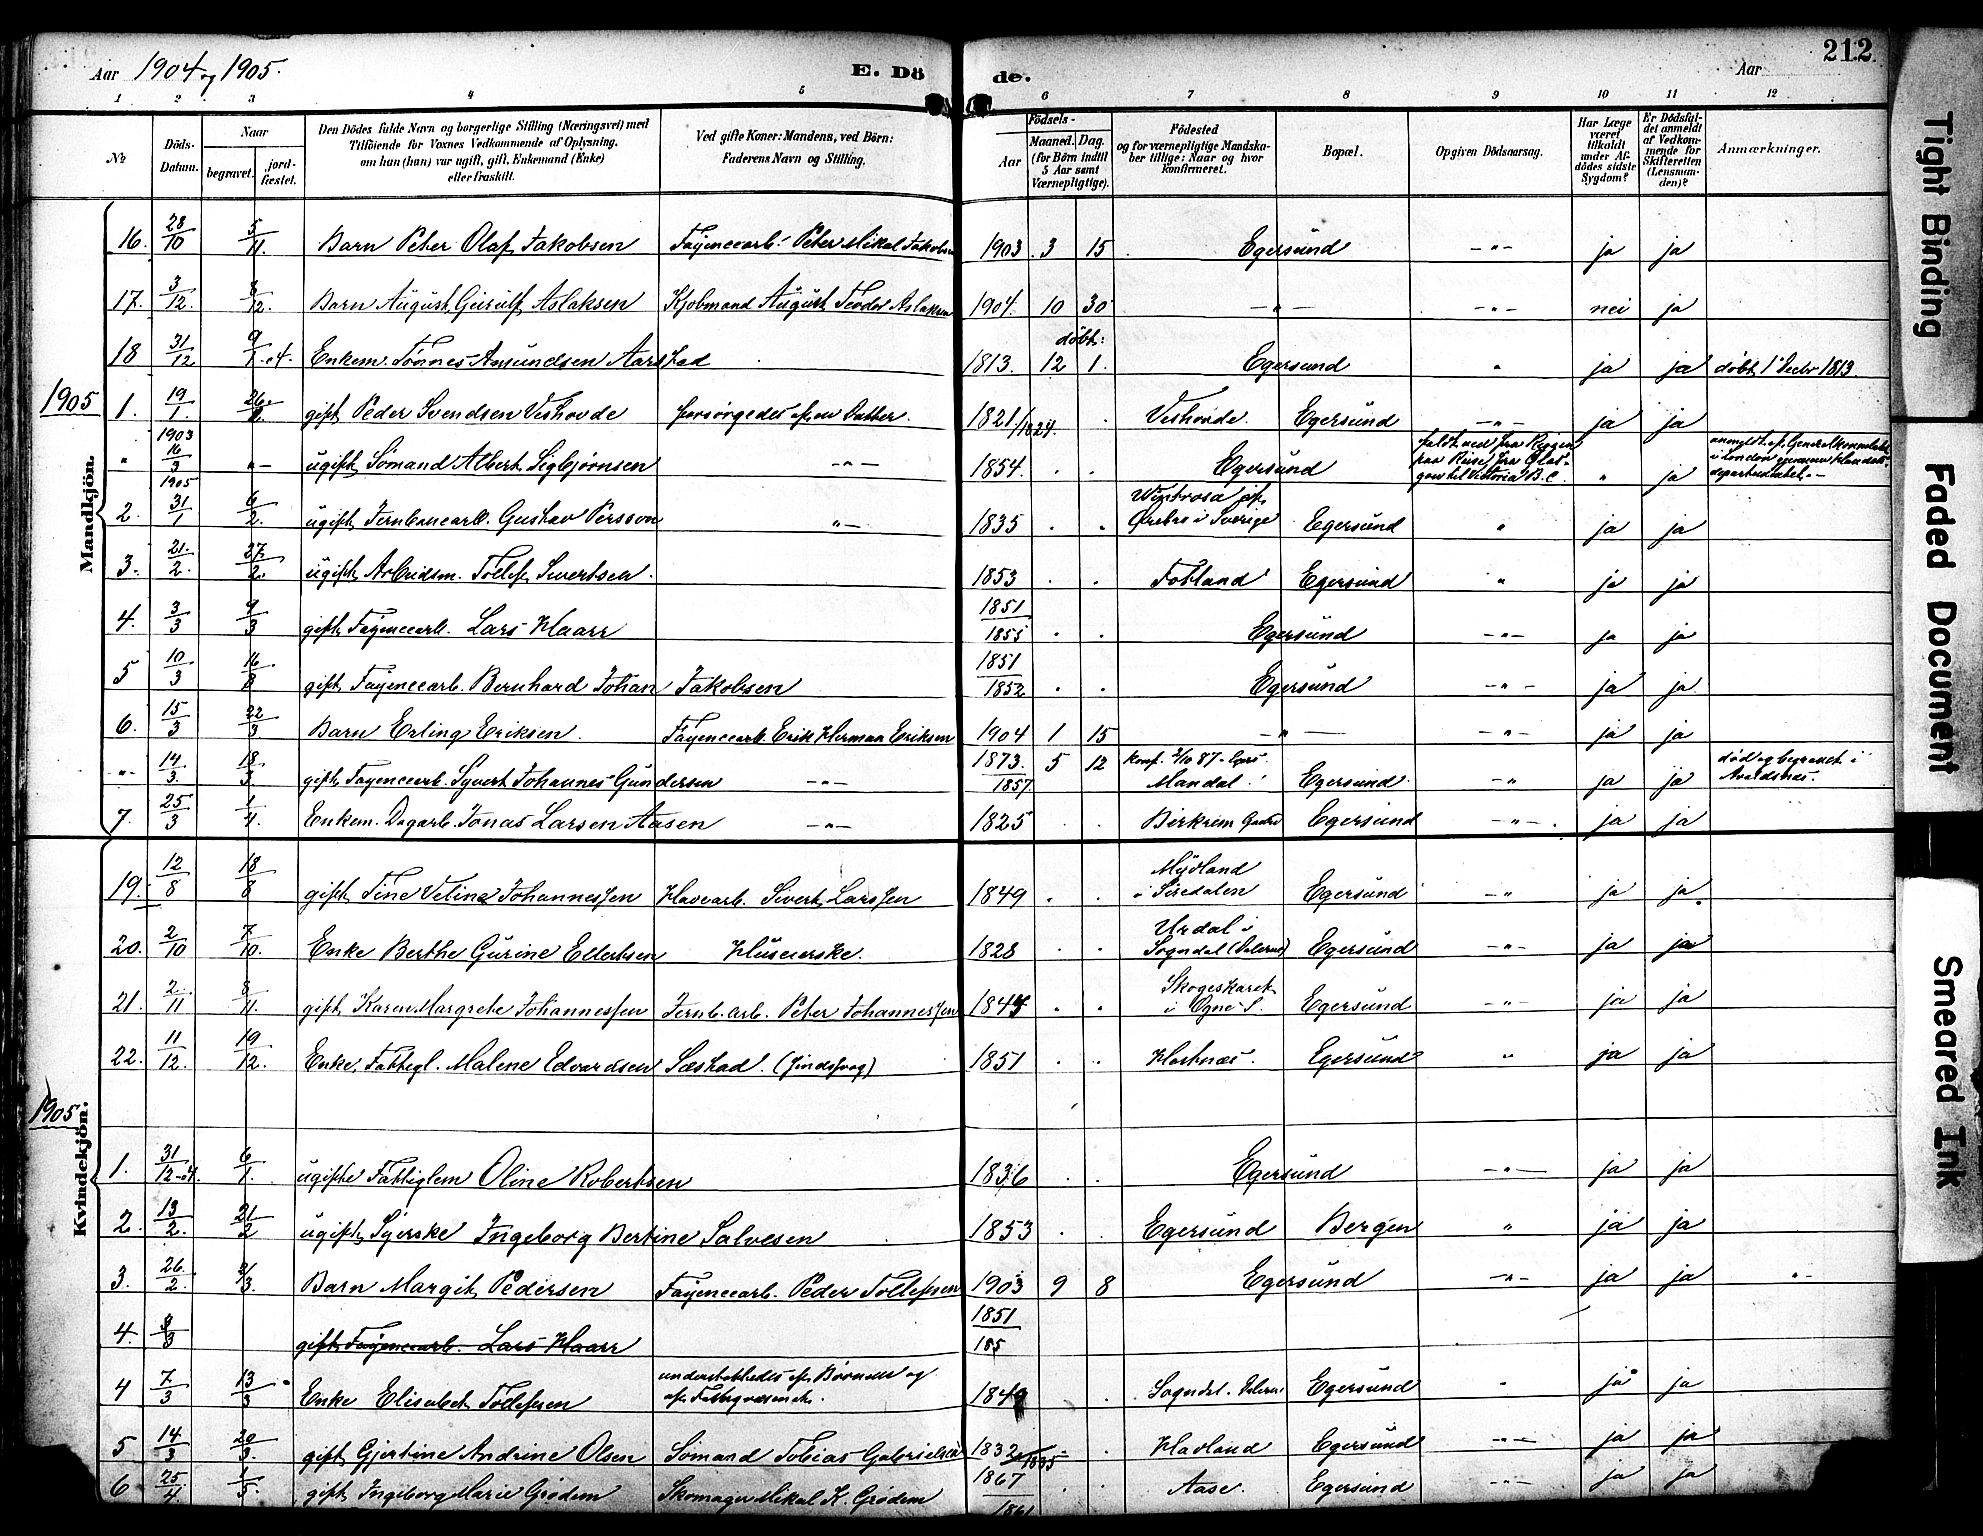 Aar 1904 og 1905. E. Dö de. Aar 212
1 2 3 4 5 6 7 8 9 10 11 12
No
Döds-Datum.
Naar begravet. jordfæstet.
Den Dödes fulde Navn og borgerlige Stilling (Næringsvei) med Tilföiende for Voxnes Vedkommende af Oplysning, om han (hun) var ugift, gift, Enkemand (Enke) eller fraskilt.
Ved gifte Koner: Mandens, ved Börn: Faderens Navn og Stilling.
Födsels-
Aar Maaned. Dag. (for Börn indtil 5 Aar samt Værnepligtige).
Födested og for værnepligtige Mandskaber tillige: Naar og hvor konfirmeret.
Bopæl.
Opgiven Dödsaarsag.
Har Læge været tilkaldt under Afdödes sidste Sygdom?
Er Dödsfaldet anmeldt af Vedkommende for Skifteretten (Lensmanden)?
Anmærkninger.
Mandkjön.
16. 28/10 5/11. Barn Peter Olaf Jakobsen Fayencearb. Peter Mikal Jakobsen 1903 3 15 Egersund -"- ja ja
17. 3/12. 8/12. Barn August Geirulf Aslaksen Kjøbmand August Teodor Aslaksen 1904. 10 30 -"- -"- nei ja
18 31/12 9/1. Enkem. Tønnes Amundsen Aarstad 1813. døbt: 12 1. Egersund " ja ja døbt 1 Decbr 1813.
1905
1. 19/1. 26/1. gift Peder Svendsen Veshovde forsørgedes af en Datter. 1821/1824. Veshovde. Egersund -"- ja ja
" 1903 16/3 "- ugift Sømand Albert Sigbjørnsen -"- 1854. Egersund faldt ned fra Riggen paa Reise fra til Victoria B.C. " ja anmeldt af Generalkonsulatet i London gjennem Handelsdepartementet.-
1905
2. 31/1 6/2. ugift Jernbanearb. Gustav Persson -"- 1835 Wintrosa pr. Ørebro i Sverige Egersund " ja ja
3. 21/2. 27/2. ugift Arbeidsm. Tollef Sivertsen. 1853 Fotland Egersund " ja ja
4. 3/3 9/3 gift Fayencearb. Lars Haarr 1851/1855 Egersund -"- ja ja
5 10/3 16/3 gift Fayencearb. Bernhard Johan Jakobsen 1851/1852 Egersund -"- ja ja
6. 15/3 22/3 Barn Erling Eriksen. Fayencearb. Erik Herman Eriksen 1904 1 15 -"- -"- ja ja
-"- 14/3. 18/3 gift Fayencearb. Syvert Johannes Gundersen -"- 1873./1857. 5 12 Konf. 2/10 87 Mandal. Egersund. -"- ja ja død og begravet i Avaldsnes.
7. 25/3 1/4. Enkem. Dagarb. Jonas Larsen Aasen -"- 1825 Birkrem Egersund -"- ja ja
Kvindekjön.
19. 12/8 18/8 gift Tine Veline Johannessen Havearb. Sivert Larssen 1849 Mydland i Siredalen Egersund -"- ja ja
20. 2/10 7/10. Enke Berthe Gurine Ellertsen Huseierske. 1828 Urdal i Sogndal (Dalerne) Egersund -"- ja ja
21. 2/11 8/11. gift Karen Margrete Johannessen Jernb. arb. Peter Johannessen 184 i Ogne S. Egersund -"- ja ja
22. 11/12. 19/12. Enke, Fattigl. Malene Edvardsen Sæstad. (sindssvag) 1851 Egersund " ja ja
1905
1. 31/12-04. 6/1. ugifte Fattiglem Oline Robertsen 1836 Egersund -"- ja ja
2. 13/2. 21/2 ugift Syerske Ingeborg Bertine Salvesen 1853 Egersund Bergen " ja ja
3. 26./2. 2/3. Barn Margit Pedersen Fayencearb. Peder Tollefsen 1903 9 8 Egersund -"- ja ja "-
4. 3/3 gift Fayencearb. Lars Haarr 1851/185
4 7/3 13/3 Enke Elisabet Tollefsen understøttedes af Børnene og af Fattigvæsenet. 1849 Sogndal. Egersund " ja ja
5 14/3 20/3. gift Gjertine Andrine Olsen Sømand Tobias Gabrielsen 1832/1835 Havland Egersund -"- ja ja
6 25/4 1/5 gift Ingeborg Marie Grødem Skomager Mikal K. Grødem 1867/1861 Aase. Egersund -"- ja ja
Tight Binding
Faded Document
Smeared Ink